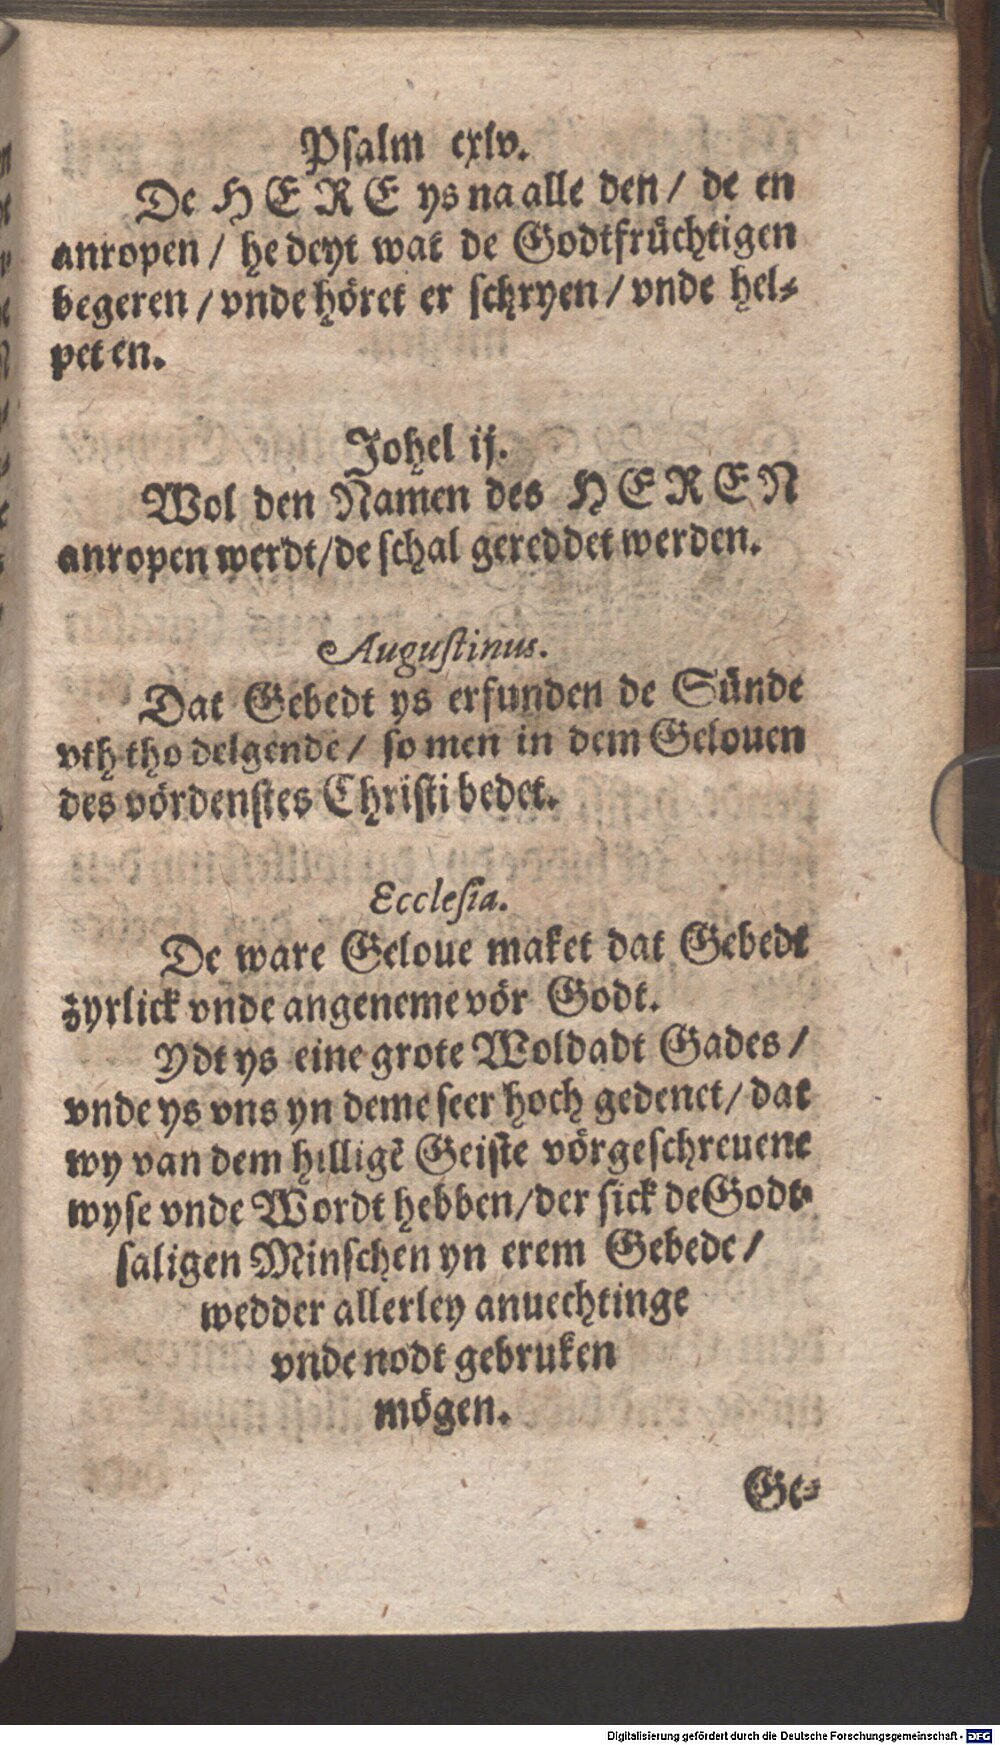 Psalm cxlv.
De HERE ys na alle den / de en
anropen / he deyt wat de Godtfrüchtigen
begeren / vnde höret er schryen / vnde hel-
pet en.
Johel ij.
Wol den Namen des HEREN
anropen werdt/de schal gereddet werden.
Augustinus.
Dat Gebedt ys erfunden de Sünde
vth tho delgende / so men in dem Gelouen
des vördenstes Christi bedet.
Ecclesia.
De ware Geloue maket dat Gebedt
zyrlick vnde angeneme vör Godt.
Ydt ys eine grote Woldadt Gades /
vnde ys vns yn deme seer hoch gedenet / dat
wy van dem hilligē Geiste vörgeschreuene
wyse vnde Wordt hebben/der sick de Godt-
saligen Minschen yn erem Gebede /
wedder allerley anuechtinge
vnde nodt gebruken
mögen.
Ge-
Digitalisierung gefördert durch die Deutsche Forschungsgemeinschaft - DFG